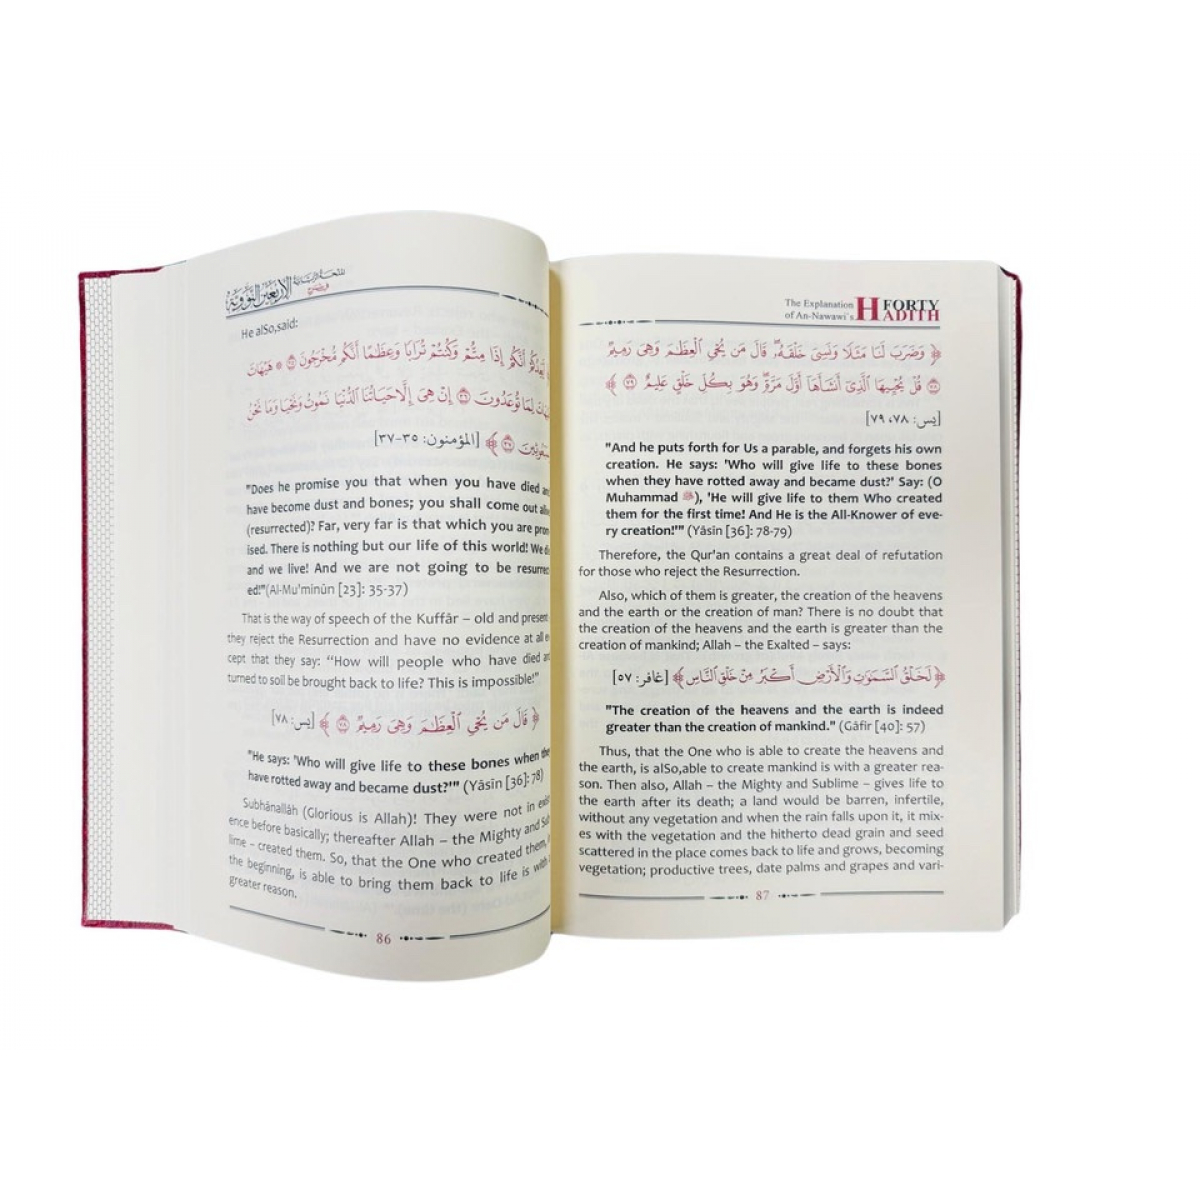 الأربعين النووية
He alSo,said:
أَيَعِدُكُمْ أَنَّكُمْ إِذَا مِتُّمْ وَكُنتُمْ تُرَابًا وَعِظَٰمًا أَنَّكُم مُّخْرَجُونَ ۝٣٥ ۞ هَيْهَاتَ
هَيْهَاتَ لِمَا تُوعَدُونَ ۝٣٦ إِنْ هِيَ إِلَّا حَيَاتُنَا ٱلدُّنْيَا نَمُوتُ وَنَحْيَا وَمَا نَحْنُ
بِمَبْعُوثِينَ ۝٣٧ ﴾ [المؤمنون: ٣٥-٣٧]
"Does he promise you that when you have died an
have become dust and bones; you shall come out aliv
(resurrected)? Far, very far is that which you are prom
ised. There is nothing but our life of this world! We d
and we live! And we are not going to be resurrec
ed!"(Al-Mu'minūn [23]: 35-37)
That is the way of speech of the Kuffâr – old and present-
they reject the Resurrection and have no evidence at all e
cept that they say: "How will people who have died an
turned to soil be brought back to life? This is impossible!"
﴿ قَالَ مَن يُحْيِ ٱلْعِظَٰمَ وَهِيَ رَمِيمٌ ۝٧٨ ﴾ [يس: ٧٨]
"He says: 'Who will give life to these bones when the
have rotted away and became dust?'" (Yâsīn [36]: 78)
Subhānallāh (Glorious is Allah)! They were not in exist
ence before basically; thereafter Allah – the Mighty and Sub
lime – created them. So, that the One who created them, in
the beginning, is able to bring them back to life is with a
greater reason.
86
The Explanation
of An-Nawawi's
FORTY
HADITH
﴿ وَضَرَبَ لَنَا مَثَلًا وَنَسِيَ خَلْقَهُۥ قَالَ مَن يُحْيِ ٱلْعِظَٰمَ وَهِيَ رَمِيمٌ
۝٧٨ قُلْ يُحْيِيهَا ٱلَّذِيٓ أَنشَأَهَآ أَوَّلَ مَرَّةٍ وَهُوَ بِكُلِّ خَلْقٍ عَلِيمٌ ۝٧٩ ﴾
[يس: ٧٨، ٧٩]
"And he puts forth for Us a parable, and forgets his own
creation. He says: 'Who will give life to these bones
when they have rotted away and became dust?' Say: (O
Muhammad ﷺ), 'He will give life to them Who created
them for the first time! And He is the All-Knower of eve-
ry creation!'" (Yâsīn [36]: 78-79)
Therefore, the Qur'an contains a great deal of refutation
for those who reject the Resurrection.
Also, which of them is greater, the creation of the heavens
and the earth or the creation of man? There is no doubt that
the creation of the heavens and the earth is greater than the
creation of mankind; Allah – the Exalted – says:
﴿ لَخَلْقُ ٱلسَّمَٰوَٰتِ وَٱلْأَرْضِ أَكْبَرُ مِنْ خَلْقِ ٱلنَّاسِ ﴾ [غافر: ٥٧]
"The creation of the heavens and the earth is indeed
greater than the creation of mankind." (Gâfir [40]: 57)
Thus, that the One who is able to create the heavens and
the earth, is alSo,able to create mankind is with a greater rea-
son. Then also, Allah – the Mighty and Sublime – gives life to
the earth after its death; a land would be barren, infertile,
without any vegetation and when the rain falls upon it, it mix-
es with the vegetation and the hitherto dead grain and seed
scattered in the place comes back to life and grows, becoming
vegetation; productive trees, date palms and grapes and vari-
87